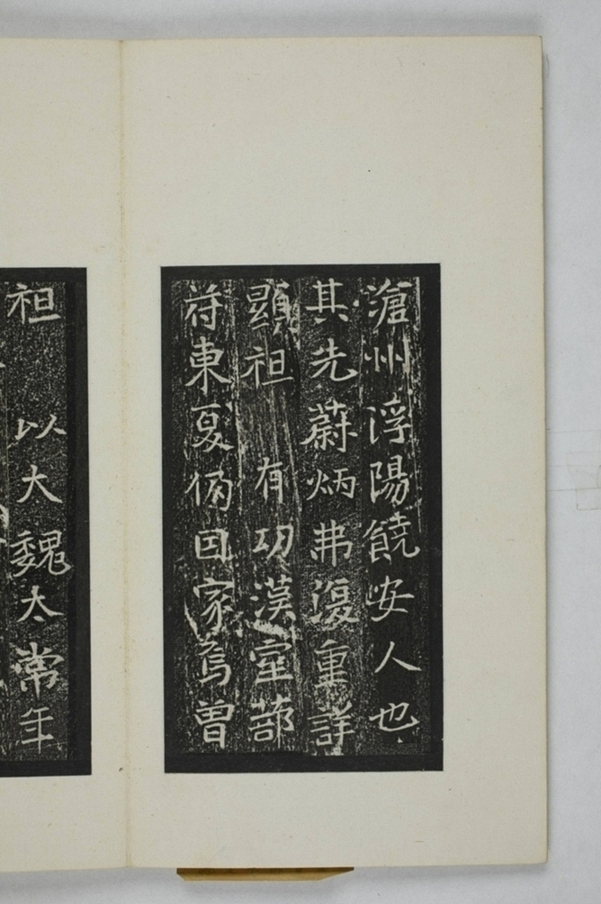 滄州浮陽饒安人也
其先蔚炳弗復重詳
顯祖 有功漢室部
符東夏僃因家焉曾
祖 以大魏太常年